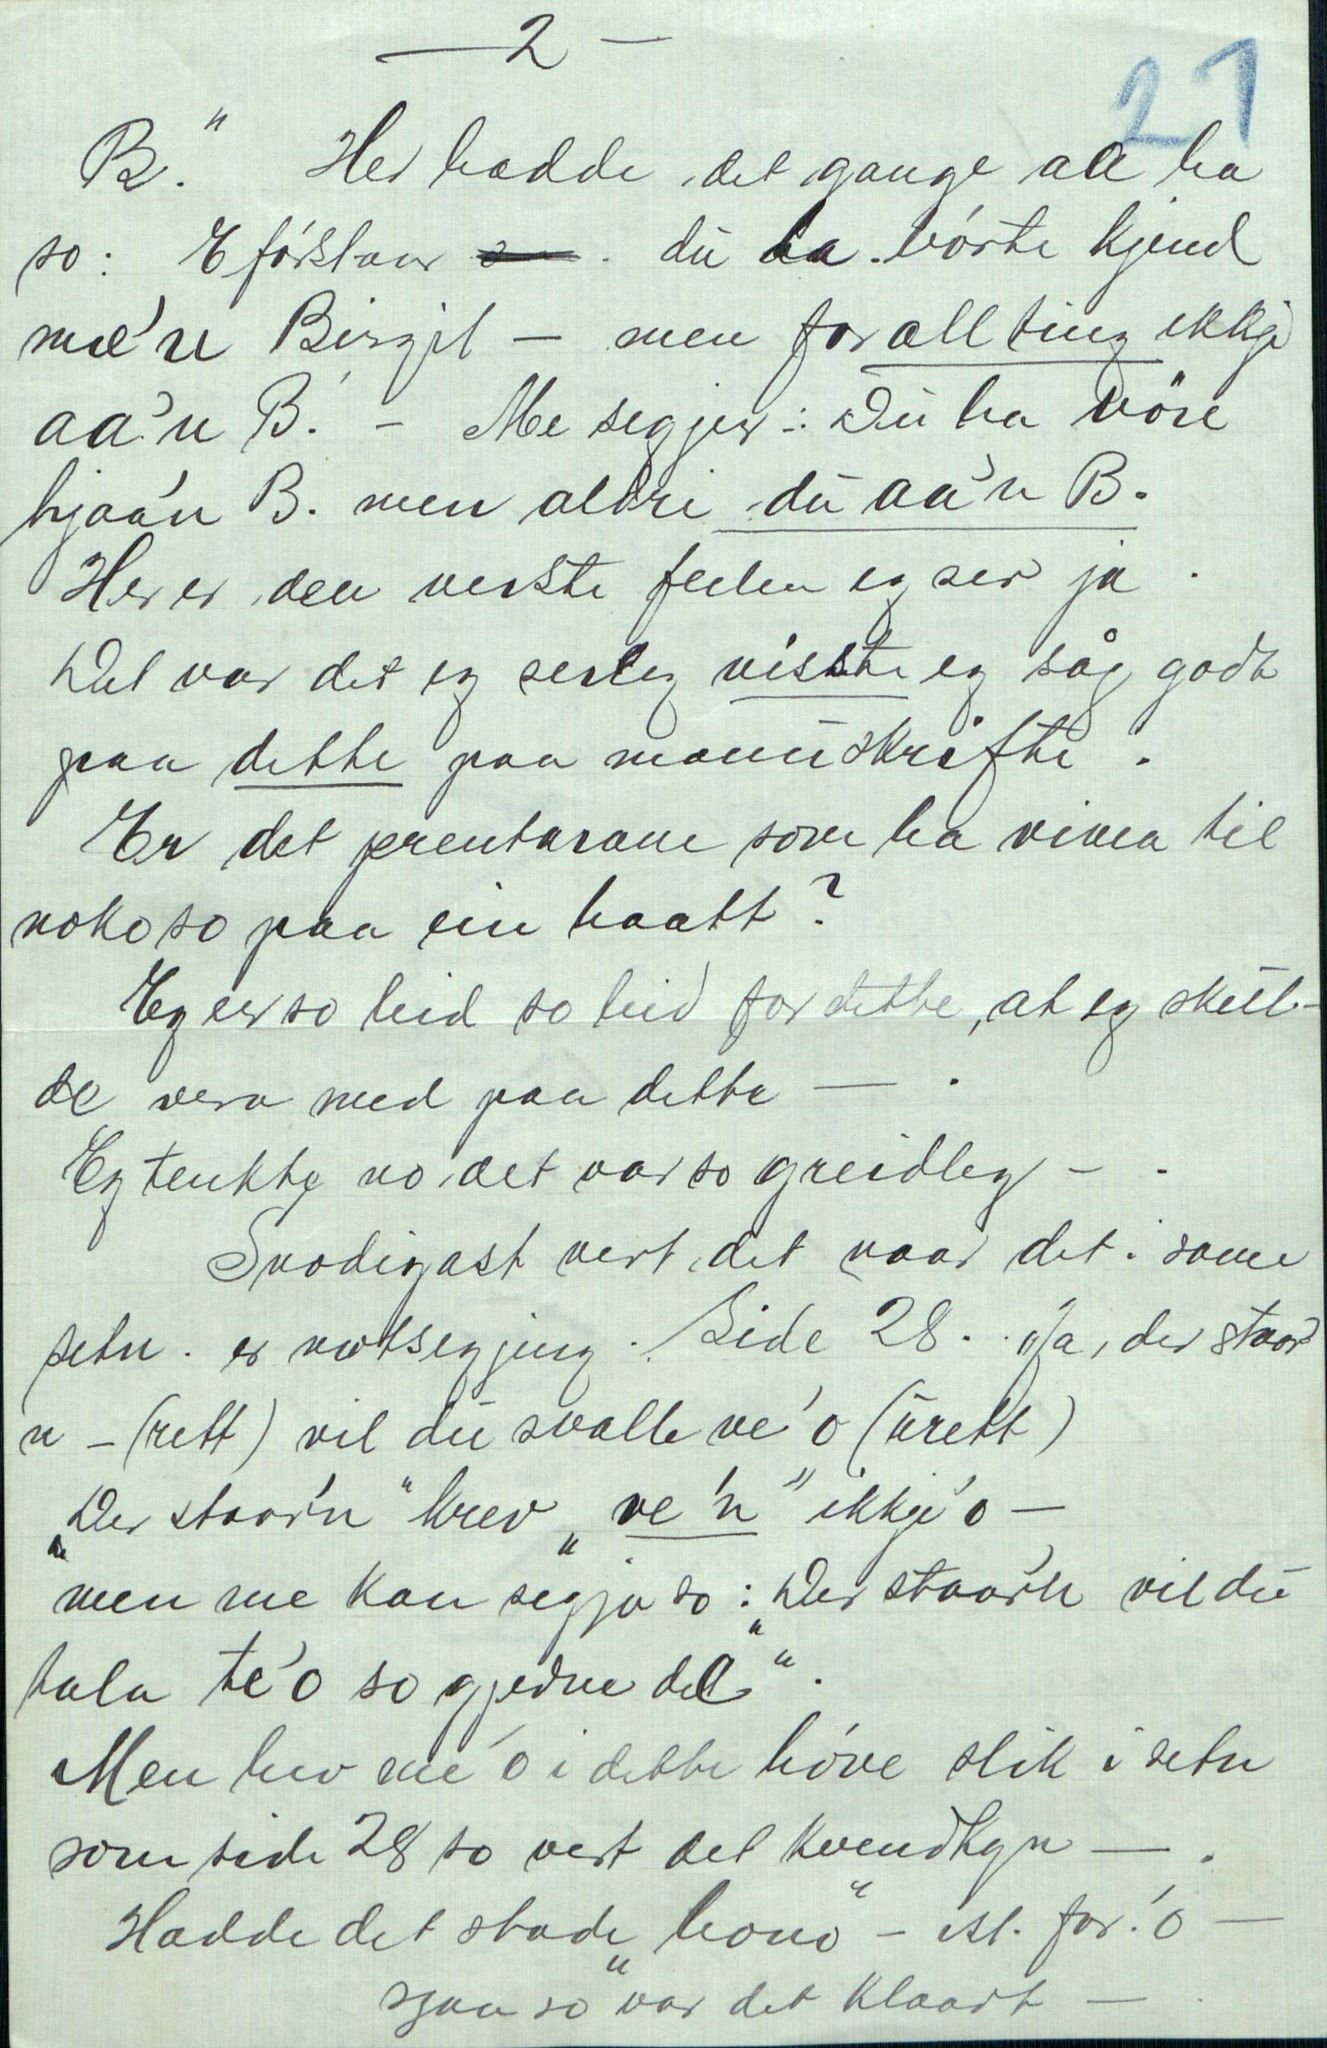 — 2 —
21
B." Her hadde det gange aa ha
so: E fórstaar du ha vórte kjend
mæ'n Birgit — men for all ting ikkje
aa'n B. — Me segjer: Du ha vöre
hjaa'n B. men aldri du aa'n B.
Her er den verste feilen eg ser ja.
Det var det eg serleg visste eg såg godt
paa dette paa manuskrifte.
Er det prentarane som ha vinna til
noko so paa ein haatt?
Eg er so leid so leid for dette, at eg skul-
de vera med paa dette — .
Eg tenkte no det var so greidleg — .
Snodigast vert det naar det i same
setn. er motsegjing. Side 28. Ja, der staar
n — (rett) vil du svalle ve'o (urett)
„Der staar'n" krev „ve'n" ikkje'o —
men me kan segja so: „Der staar'n vil du
tala te'o so gjedne det".
Men hev me 'o i dette hóve slik i setn
som side 28 so vert det kvendkyn — .
Hadde det stade „hono" — ist. for 'o —
sjaa so var det klaart —